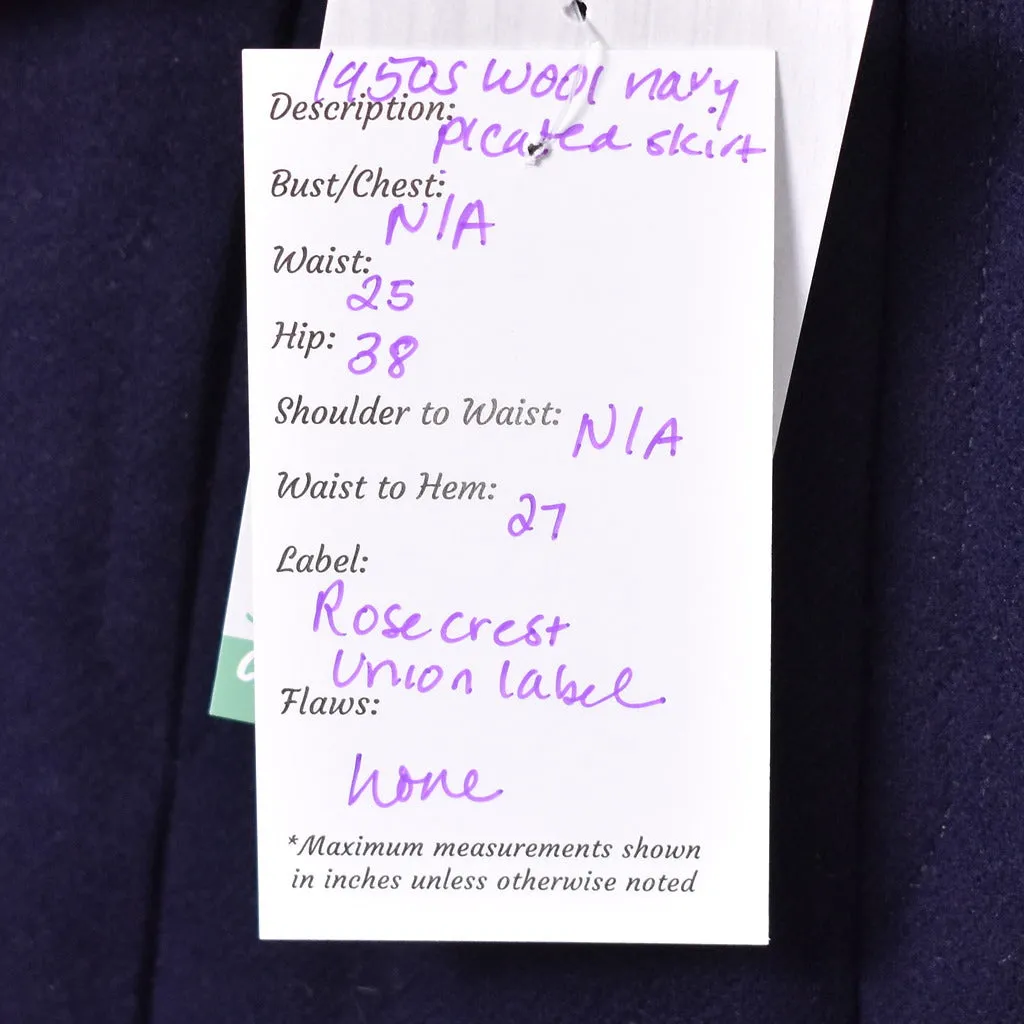 1950s wool navy
Description:
pleated skirt
Bust/Chest:
N/A
Waist:
25
Hip: 38
Shoulder to Waist: N/A
Waist to Hem: 27
Label:
Rosecrest
Union label
Flaws:
none
*Maximum measurements shown
in inches unless otherwise noted